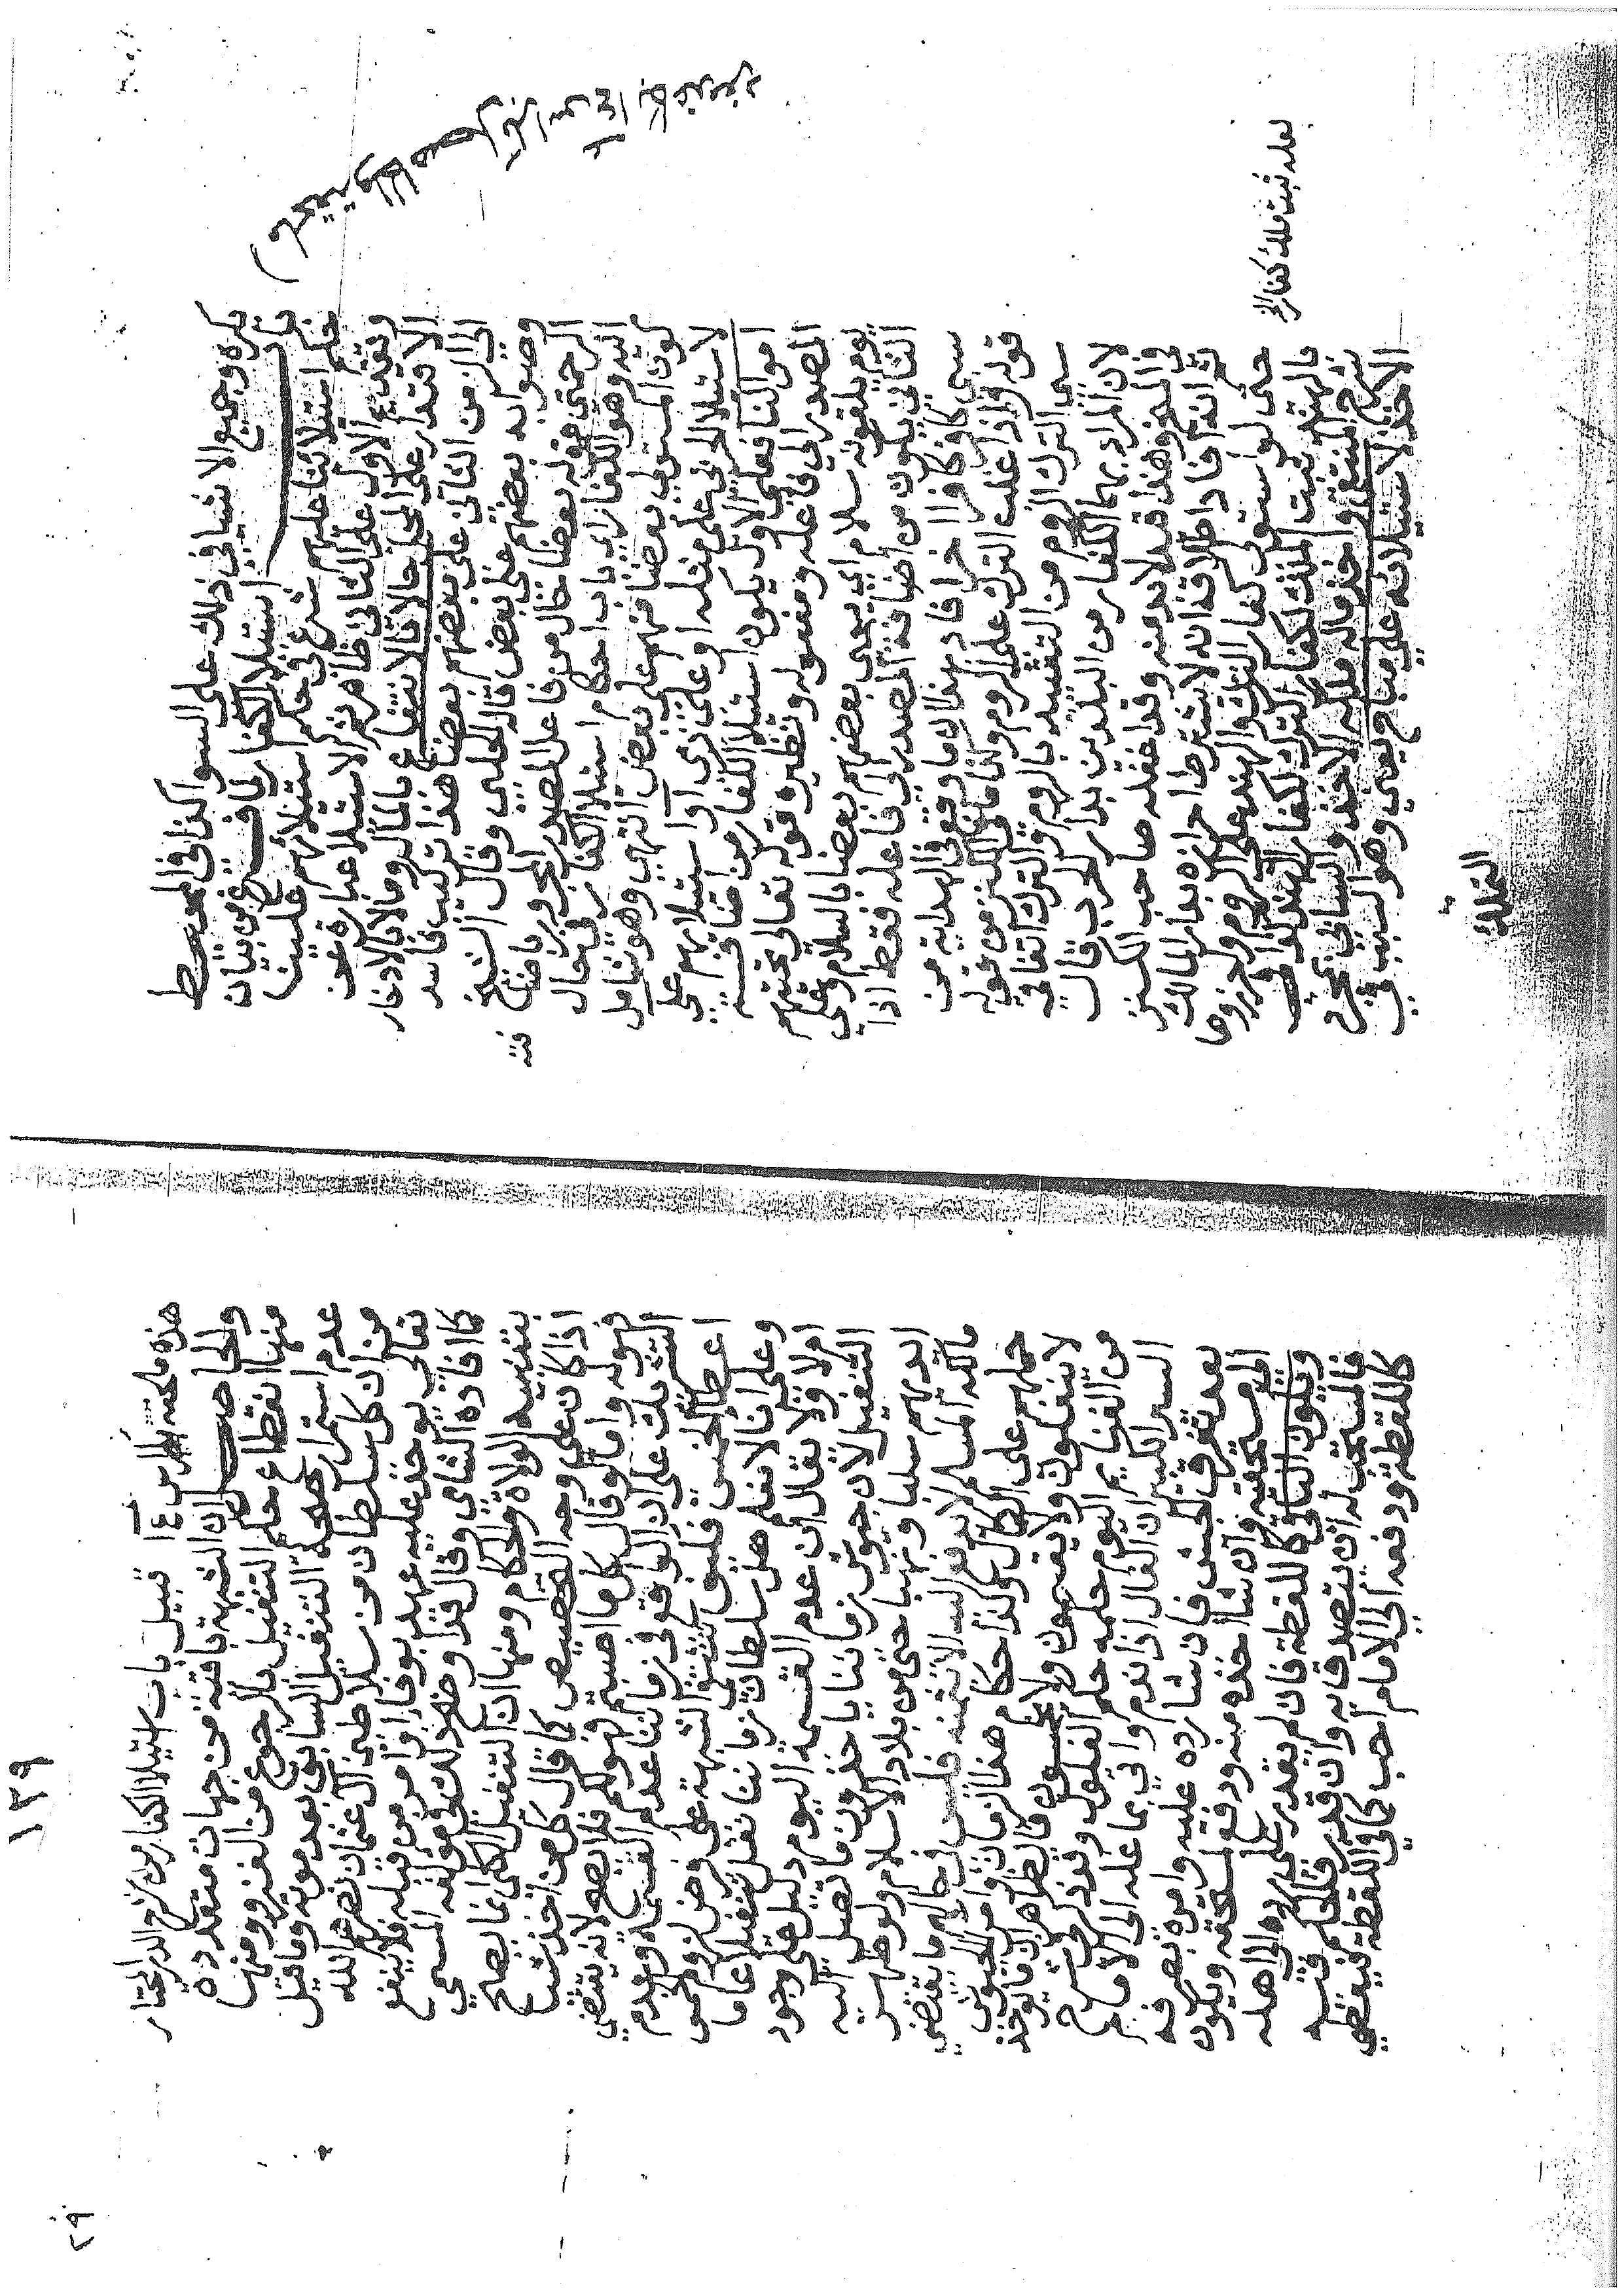 يكره وجميع الاشيا في ذلك على السوا كذا في المحيط
باب استيلا الكفار لما فرغ من بيان
حكم استيلائنا عليهم شرع في حكم استيلائهم علينا
وتقديم الاول على الثاني ظاهر ثم الاستيلا عبارة عن
الاقتدار على المحل حالا بالانتفاع ومالا بالادخار
الى الزمن الثاني على بعضهم بعضا هذا تركيب فاسد
وصوابه بعضهم على بعض قاله الحلبي وقال الشيخ
الرحمتي قوله بعضا حال من فاعل المصدر المجرور باضافته
اليه وهو الكفار اي باب احكام استيلا الكفار في حال
كون المستولي بعضا منهم على بعض انتهى وهو شامل
لاستيلا الحربي على مثله او على ذمي او استيلائهم على
اموالنا فعلى الاول يكون استيلا الكفار من اضافة
المصدر الى فاعله ومفعوله ونظيره قوله تعالى تحيتهم
يوم يلقونه سلام اي يحيى بعضهم بعضا بالسلام وعلى
الثاني يكون من اضافة المصدر الى فاعله فقط اذا
سبى كافر كافرا اخر افاد بهذا ان ما وقع في الهداية من
قوله واذا غلب الترك على الروم وكذا ما في الكنز من قوله
سبى الترك الروم من التقييد بالروم والترك اتفاقي
لان المراد بهما الكفار من البلدين بدار الحرب قال
في النهر وهذا قيد لا بد منه وقد اغفله صاحب الكنز
ثم انه افاد اطلاقه انه لا يشترط احرازه بدار المالك
حتى لو استولى كفار الترك والهند على الروم واحرزوها
بالهند ثبت الملك لكفار الترك لكفار الهند
شرح الملتقى واخذ ماله ملكه الاخذ والسابي بمجرد
الاخذ لاستيلائه على مباح يعني وهو السبب في
التملك
لعله ثبت ملك كفار
١٣٩
هذه ملحقة قبيل باب استيلا الكفار من شرح الدر المختار
والحاصل ان الشبهة باقية من جهات متعددة
منها انقطاع حكم التنفيل بالرجوع من الغزو ومنها
عدم استمرار صحة التنفيل السابق بعد موته وما قيل
من ان كل سلطان من سلاطين آل عثمان نصرهم الله
تعالى يوخذ عليه عهد بوفا اوامر من قبله فلا ينفع
كما افاده الشامي وقال قد اوضحت ذلك في مؤلفه المسمى
بتنبيه الولاة والحكام ومنها ان التنفيل الكلي انما يصح
اذا كان على وجه التخصيص كما قال كل من اخذ شيا
فهو له واما لو قال كل ما اصبتم فهو لكم فلا يصح لانه يقتضي
التشريك على ان الواقع في زماننا عدم القسمة وعدم
اعطا الخمس فلتبق الشبهة على فرض لزوم الخمس
وعلى انا لا نعلم هل سلطان زماننا نفل تنفيلا عاما
ام لا ولا يقال ان عدم القسمة اليوم دليل على وجود
التنفيل لان جيوش زماننا ياخذون ما تصل اليه
ايديهم سلبا ونهبا حتى من بلاد الاسلام ولو ظهر
مالكه المسلم لا يدفع اليه الا بثمنه فليس في حالهم ما يقتضي
حملهم على الكمال وكذا حكام هذا الزمان وامرا الجيوش
لا ينفلون ولا يقسمون ولا يخمسون فالظاهر ان ما يوخذ
من الغنايم اليوم حكمه حكم الغلول وقد ذكر في شرح
السير الكبير ان الغال اذا ندم واتى بما غله الى الامام
بعد تفرق الجيش فان شا رده عليه وامره بصرفه
الى مستحقيه وان شا اخذه منه ودفع لمستحقه ويكون
ويكون الباقي كاللقطة فان لم يقدر على رده الى اهله
فالمستحب له ان يتصدق به وان قدر فالحكم فيه
كاللقطة ودفعه الى الامام احب كما في اللقطة فيعطي